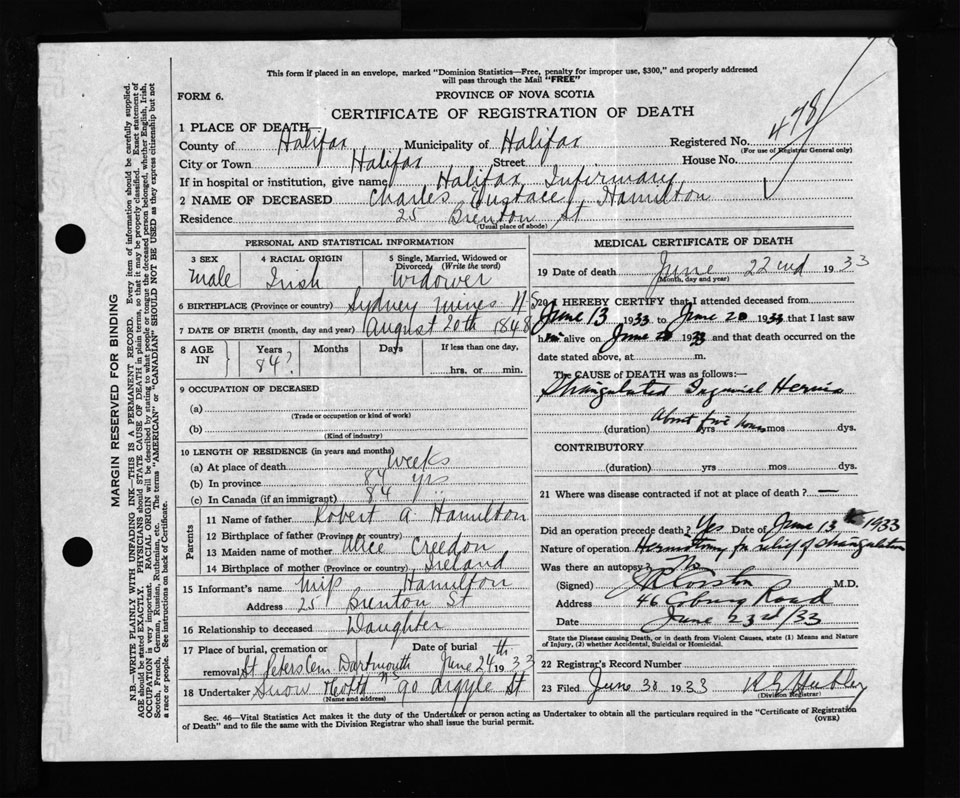 This form if placed in an envelope, marked "Dominion Statistics—Free, penalty for improper use, $300," and properly addressed
will pass through the Mail "FREE"
FORM 6.
PROVINCE OF NOVA SCOTIA
CERTIFICATE OF REGISTRATION OF DEATH
478
1 PLACE OF DEATH
County of Halifax Municipality of Halifax Registered No.
(For use of Registrar General only)
City or Town Halifax Street House No.
If in hospital or institution, give name Halifax Infirmary
2 NAME OF DECEASED Charles Hamilton
Residence 25 Brenton St
(Usual place of abode)
PERSONAL AND STATISTICAL INFORMATION
3 SEX 4 RACIAL ORIGIN 5 Single, Married, Widowed or Divorced (Write the word)
Male Irish Widower
6 BIRTHPLACE (Province or country) Sydney Mines N S
7 DATE OF BIRTH (month, day and year) August 20th 1848
8 AGE IN Years Months Days If less than one day,
84? hrs. or min.
9 OCCUPATION OF DECEASED
(a)
(Trade or occupation or kind of work)
(b)
(Kind of industry)
10 LENGTH OF RESIDENCE (in years and months)
(a) At place of death weeks
(b) In province 84 yrs
(c) In Canada (if an immigrant) 84 "
Parents
11 Name of father Robert A. Hamilton
12 Birthplace of father (Province or country)
13 Maiden name of mother Alice Creedon
14 Birthplace of mother (Province or country) Ireland
15 Informant's name Miss Hamilton
Address 25 Brenton St
16 Relationship to deceased Daughter
17 Place of burial, cremation or removal Date of burial
St Peters Cem Dartmouth N S June 24th 1933
18 Undertaker Snow 90 Argyle St
(Name and address)
MEDICAL CERTIFICATE OF DEATH
19 Date of death June 22nd 1933
(Month, day and year)
20 I HEREBY CERTIFY that I attended deceased from
June 13 1933 to June 20 1933 that I last saw
him alive on June 20 1933 and that death occurred on the
date stated above, at m.
The CAUSE OF DEATH was as follows:—
Strangulated Inguinal Hernia
About five hours
(duration) yrs mos dys.
CONTRIBUTORY
(duration) yrs mos dys.
21 Where was disease contracted if not at place of death? —
Did an operation precede death? Yes Date of June 13th 1933
Nature of operation Herniotomy for relief of strangulation
Was there an autopsy? No
(Signed) M.D.
Address 46 Coburg Road
Date June 23rd/33
State the Disease causing Death, or in death from Violent Causes, state (1) Means and Nature
of Injury, (2) whether Accidental, Suicidal or Homicidal.
22 Registrar's Record Number
23 Filed June 30 1933
(Division Registrar)
Sec. 46—Vital Statistics Act makes it the duty of the Undertaker or person acting as Undertaker to obtain all the particulars required in the "Certificate of Registration
of Death" and to file the same with the Division Registrar who shall issue the burial permit.
(OVER)
MARGIN RESERVED FOR BINDING
N.B.—WRITE PLAINLY WITH UNFADING INK—THIS IS A PERMANENT RECORD. Every item of information should be carefully supplied.
AGE should be stated EXACTLY. PHYSICIANS should STATE CAUSE OF DEATH in plain terms, so that it may be properly classified. Exact statement of
OCCUPATION is very important. RACIAL ORIGIN will be described by stating to what people or tongue the deceased person belonged, whether English, Irish,
Scotch, French, German, Russian, Ruthenian, etc. The terms "AMERICAN" or "CANADIAN" SHOULD NOT BE USED as they express citizenship but not
a race or people. See instructions on back of Certificate.